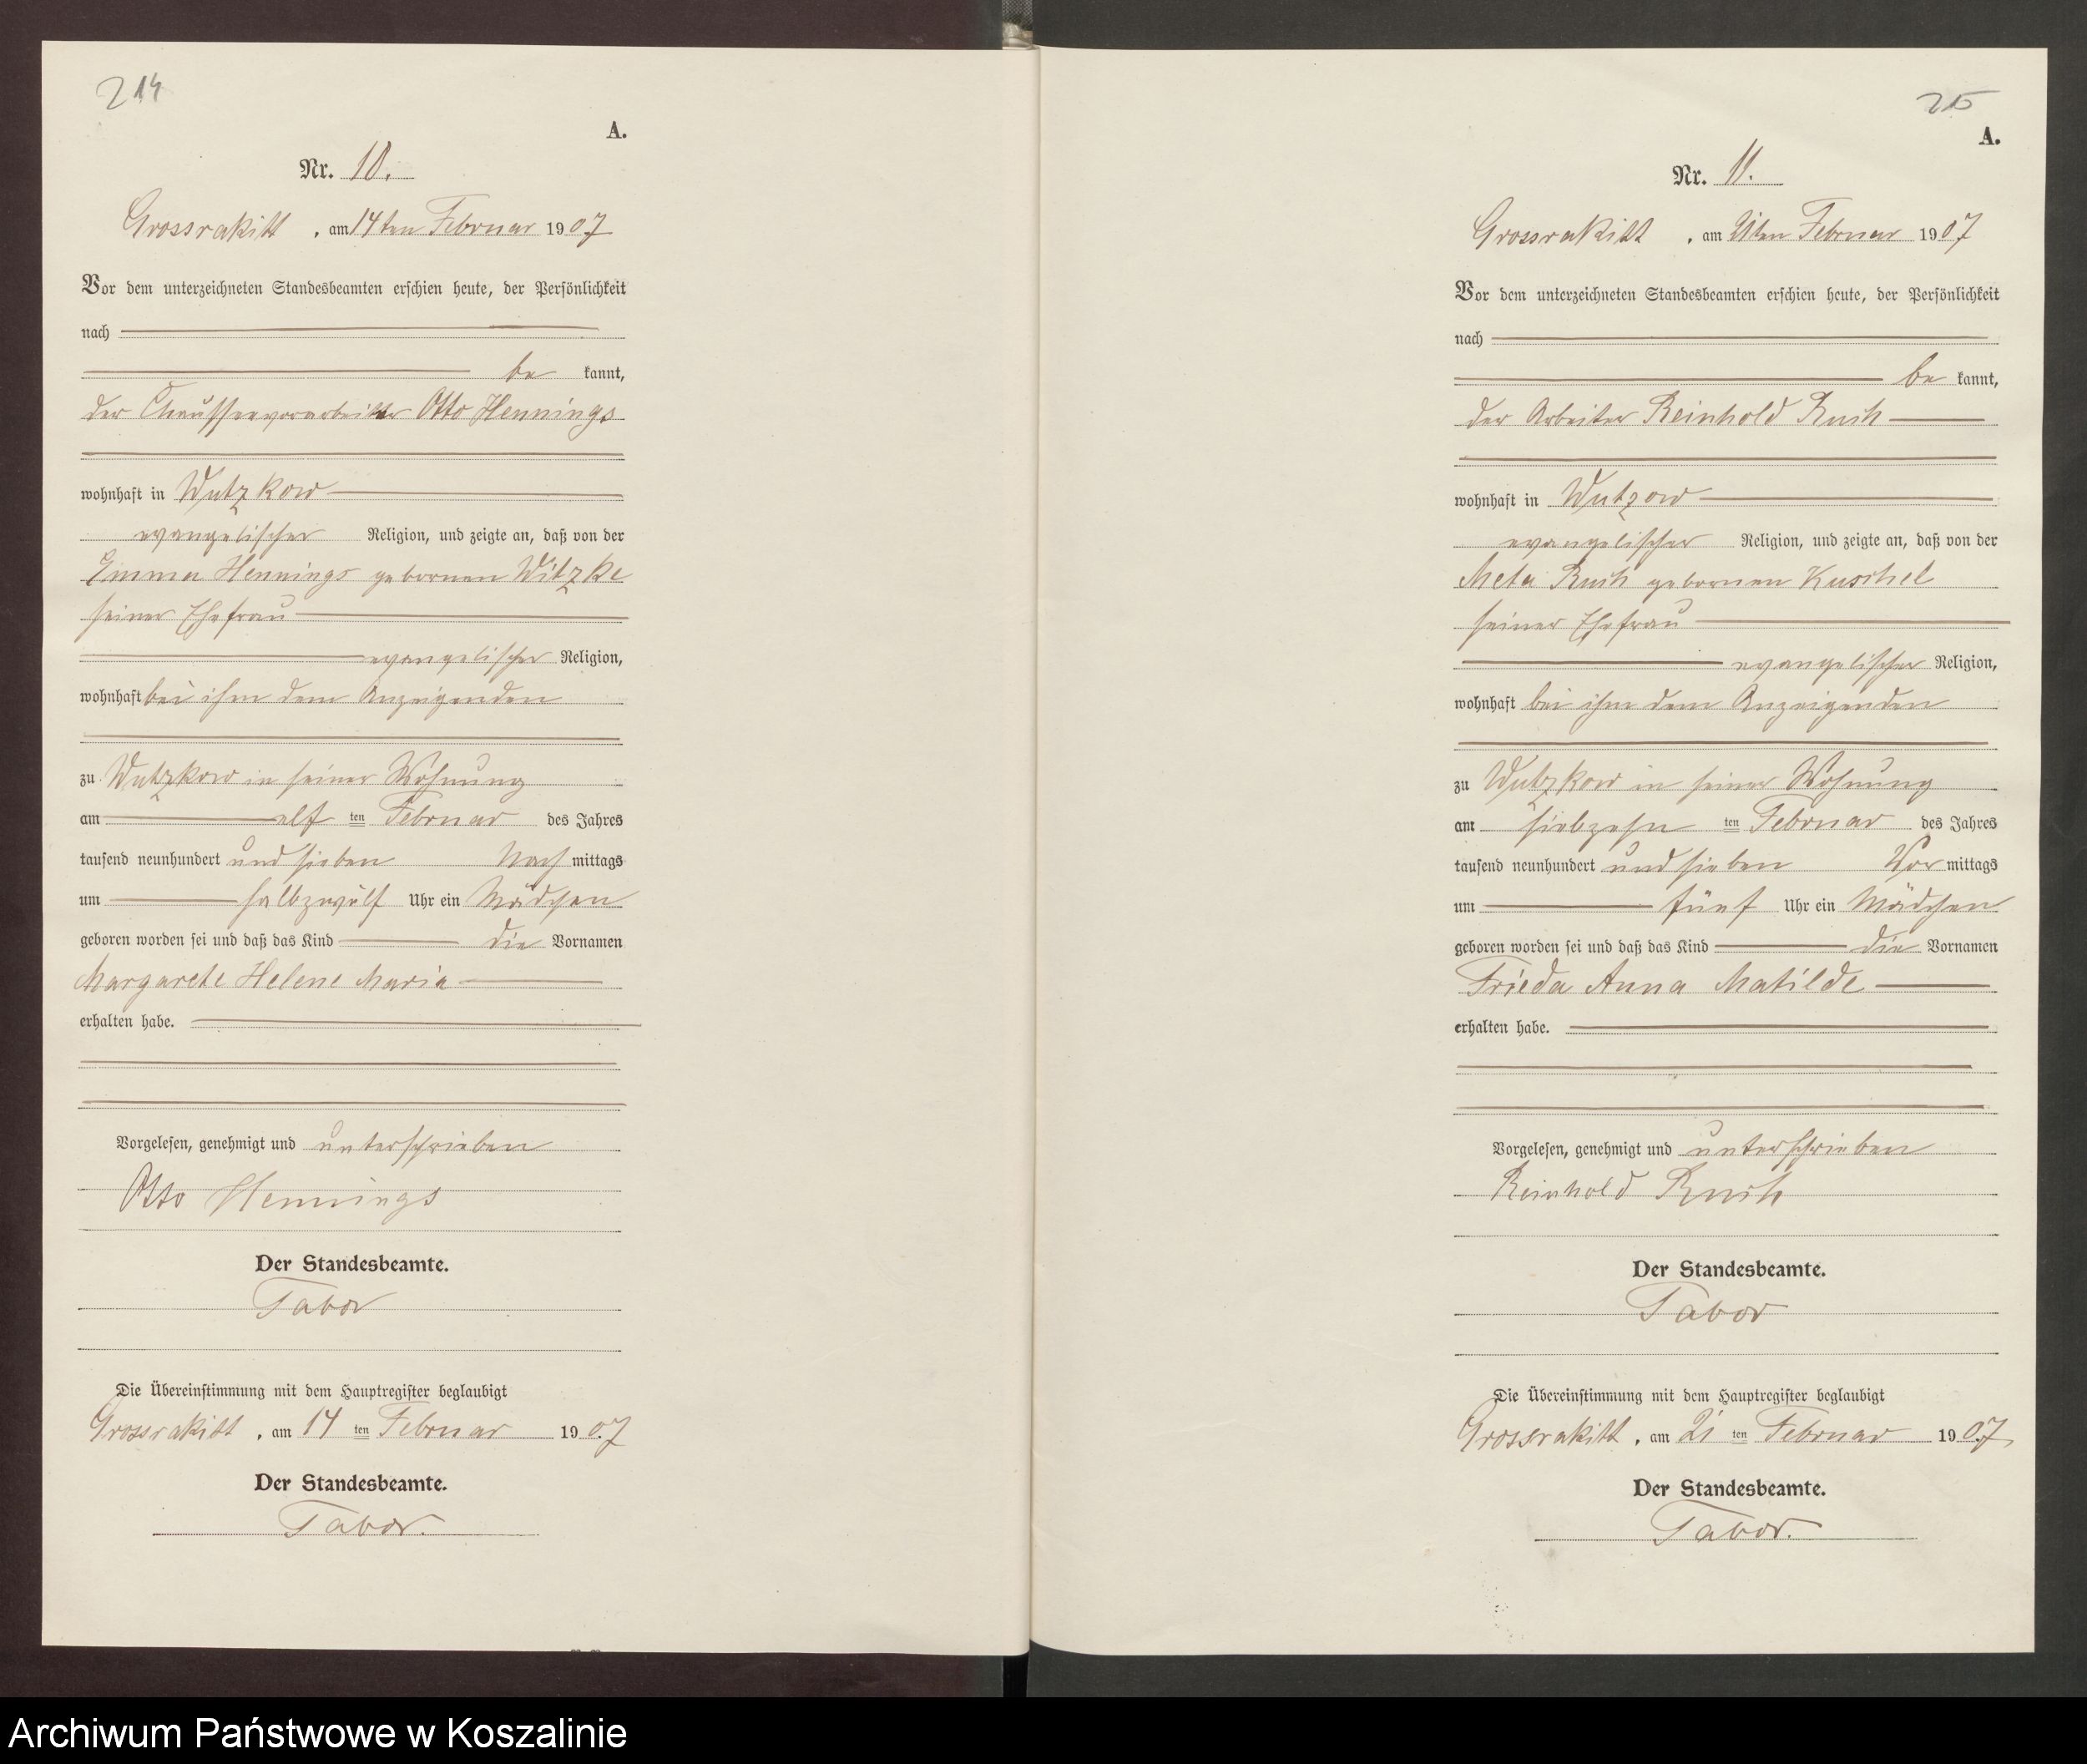 214
A.
Nr. 10.
Grossrakitt, am 14ten Februar 1907
Vor dem unterzeichneten Standesbeamten erschien heute, der Persönlichkeit
nach
be kannt,
der Chausseevorarbeiter Otto Hennings
wohnhaft in Wutzkow
evangelischer Religion, und zeigte an, daß von der
Emma Hennings geborenen Witzke
seiner Ehefrau
evangelischer Religion,
wohnhaft bei ihm dem Anzeigenden
zu Wutzkow in seiner Wohnung
am elf ten Februar des Jahres
tausend neunhundert und sieben Nach mittags
um halbzwölf Uhr ein Mädchen
geboren worden sei und daß das Kind die Vornamen
Margarete Helene Maria
erhalten habe.
Vorgelesen, genehmigt und unterschrieben
Otto Hennings
Der Standesbeamte.
Tabor
Die Übereinstimmung mit dem Hauptregister beglaubigt
Grossrakitt, am 14 ten Februar 1907
Der Standesbeamte.
Tabor.
215
A.
Nr. 11.
Grossrakitt, am 21ten Februar 1907
Vor dem unterzeichneten Standesbeamten erschien heute, der Persönlichkeit
nach
be kannt,
der Arbeiter Reinhold
wohnhaft in Wutzow
evangelischer Religion, und zeigte an, daß von der
Meta geborenen Kuschel
seiner Ehefrau
evangelischer Religion,
wohnhaft bei ihm dem Anzeigenden
zu Wutzkow in seiner Wohnung
am siebzehn ten Februar des Jahres
tausend neunhundert und sieben Vor mittags
um fünf Uhr ein Mädchen
geboren worden sei und daß das Kind die Vornamen
Frieda Anna Matilde
erhalten habe.
Vorgelesen, genehmigt und unterschrieben
Reinhold
Der Standesbeamte.
Tabor
Die Übereinstimmung mit dem Hauptregister beglaubigt
Grossrakitt, am 21 ten Februar 1907
Der Standesbeamte.
Tabor.
Archiwum Państwowe w Koszalinie